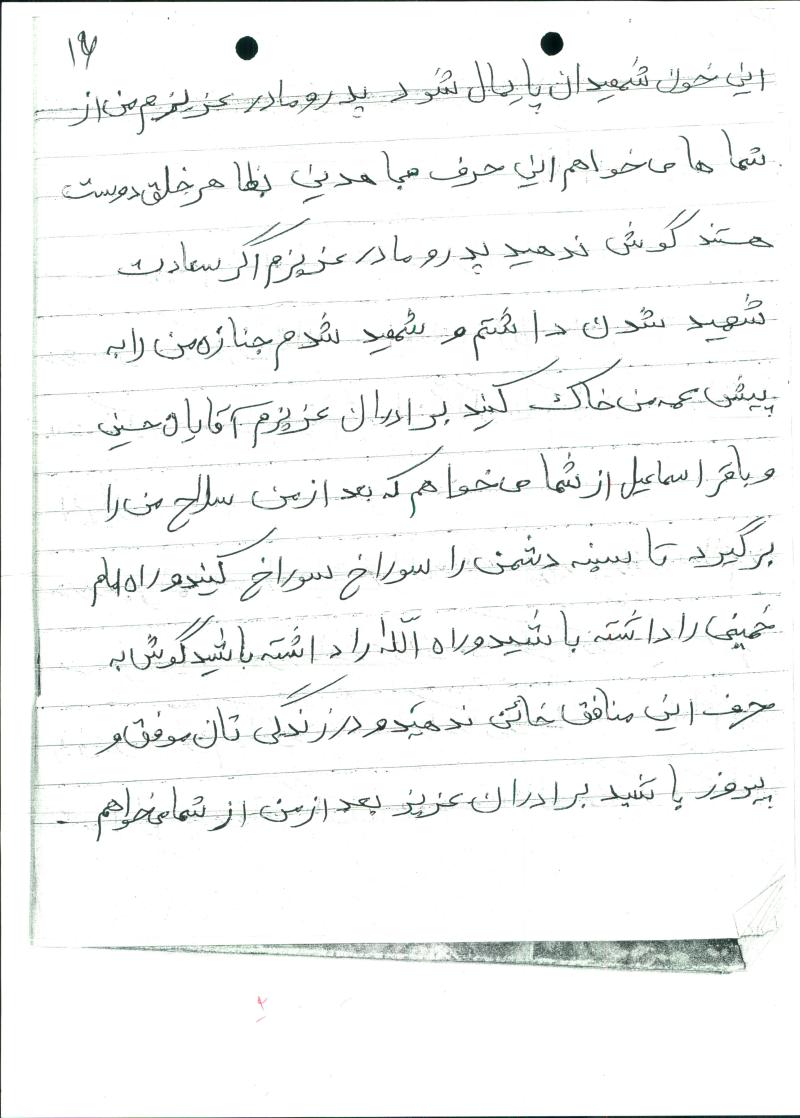 ۱۶
این خون شهیدان پایمال شود پدر و مادر عزیزم من از
شما ها می خواهم این حرف مجاهدینی بظاهر خلق دوست
هستند گوش ندهید پدر و مادر عزیزم اگر سعادت
شهید شدن داشتم و شهید شدم جنازه من را به
پیش عمه من خاک کنید برادران عزیزم آقایان حسین
و باقر اسماعیل از شما می خواهم که بعد از من سلاح من را
برگیرد تا سینه دشمن را سوراخ سوراخ کنید و راه امام
خمینی را داشته باشید و راه الله را داشته باشید گوش به
حرف این منافق خائن ندهید و در زندگی تان موفق و
پیروز باشید برادران عزیز بعد از من از شما می خواهم .